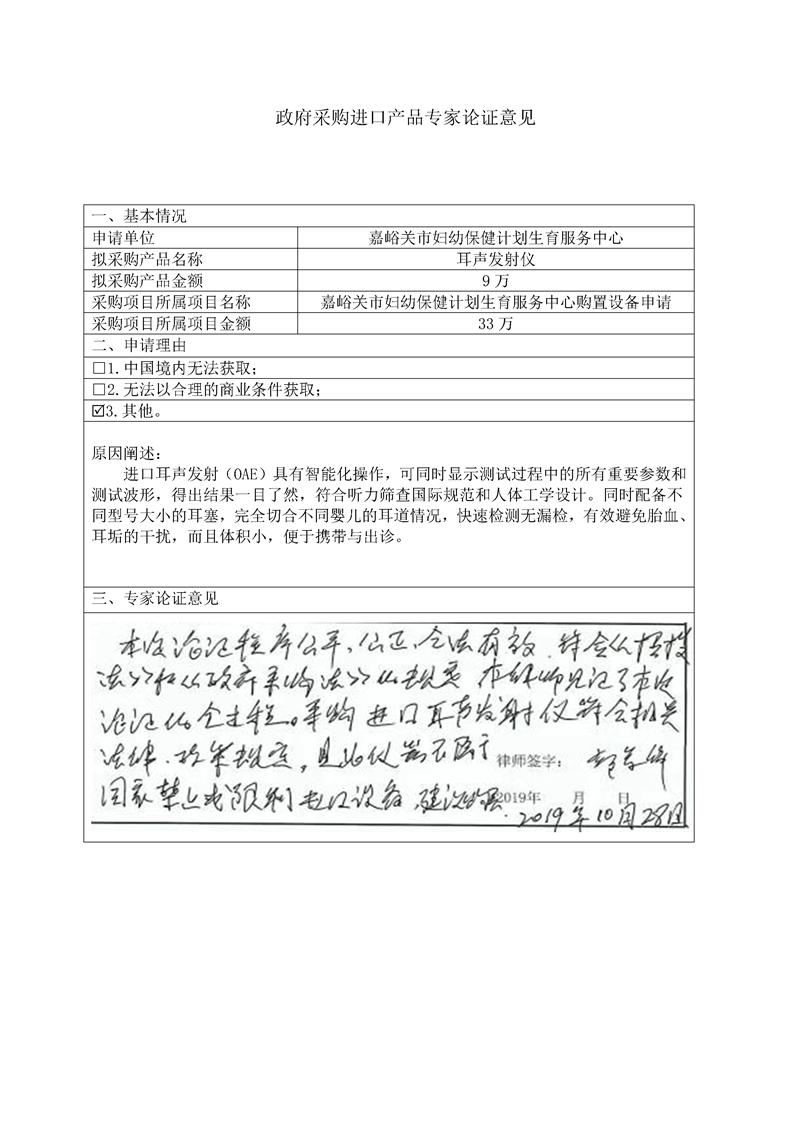 政府采购进口产品专家论证意见
一、基本情况
申请单位 嘉峪关市妇幼保健计划生育服务中心
拟采购产品名称 耳声发射仪
拟采购产品金额 9 万
采购项目所属项目名称 嘉峪关市妇幼保健计划生育服务中心购置设备申请
采购项目所属项目金额 33 万
二、申请理由
□1.中国境内无法获取；
□2.无法以合理的商业条件获取；
☑3.其他。
原因阐述：
进口耳声发射（OAE）具有智能化操作，可同时显示测试过程中的所有重要参数和
测试波形，得出结果一目了然，符合听力筛查国际规范和人体工学设计。同时配备不
同型号大小的耳塞，完全切合不同婴儿的耳道情况，快速检测无漏检，有效避免胎血、
耳垢的干扰，而且体积小，便于携带与出诊。
三、专家论证意见
本次论证程序公平、公正、合法有效。符合《招投
法》和《政府采购法》的规定 本律师见证了本次
论证的全过程。采购进口耳声发射仪符合相关
法律、政策规定，且此仪器不属于 律师签字：
国家禁止或限制进口设备 建议 2019年 月 日
2019年10月28日